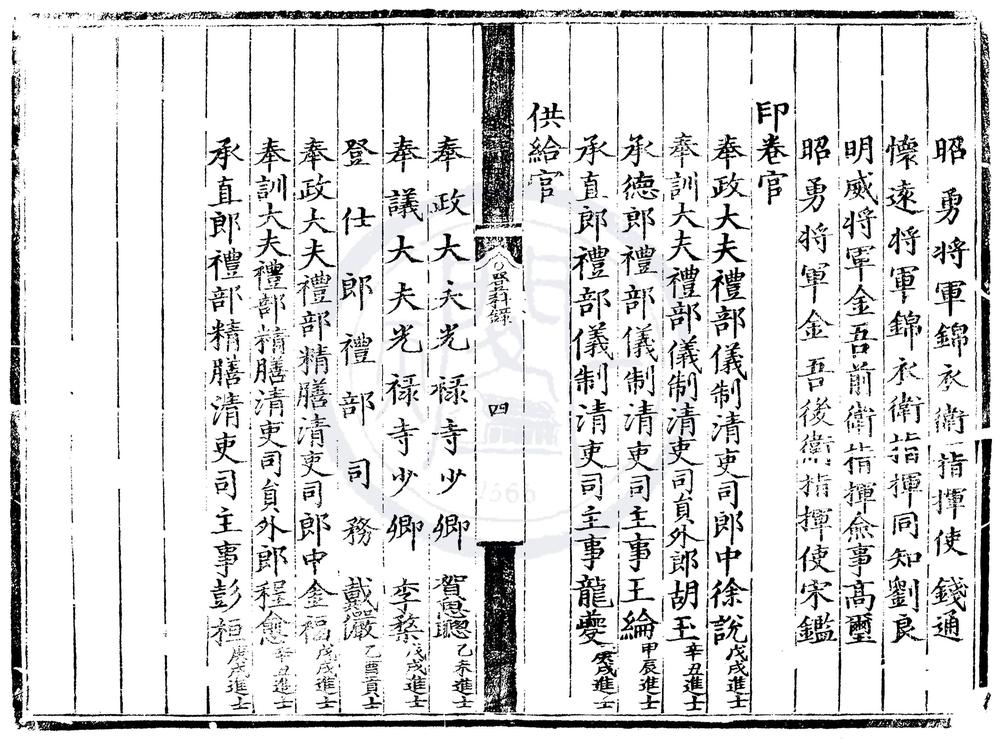 昭勇將軍錦衣衛指揮使錢通
懷遠將軍錦衣衛指揮同知劉良
明威將軍金吾前衛指揮僉事高璽
昭勇將軍金吾後衛指揮使宋鑑
印卷官
奉政大夫禮部儀制清吏司郎中徐說戊戌進士
奉訓大夫禮部儀制清吏司員外郎胡玉辛丑進士
承德郎禮部儀制清吏司主事王綸甲辰進士
承直郎禮部儀制清吏司主事龍夔庚戌進士
供給官
登科錄
四
奉政大夫光祿寺少卿賀思聰乙未進士
奉議大夫光祿寺少卿李棨戊戌進士
登仕郎禮部司務戴巖乙酉貢士
奉政大夫禮部精膳清吏司郎中金福戊戌進士
奉訓大夫禮部精膳清吏司員外郎程愈辛丑進士
承直郎禮部精膳清吏司主事彭桓庚戌進士
1566